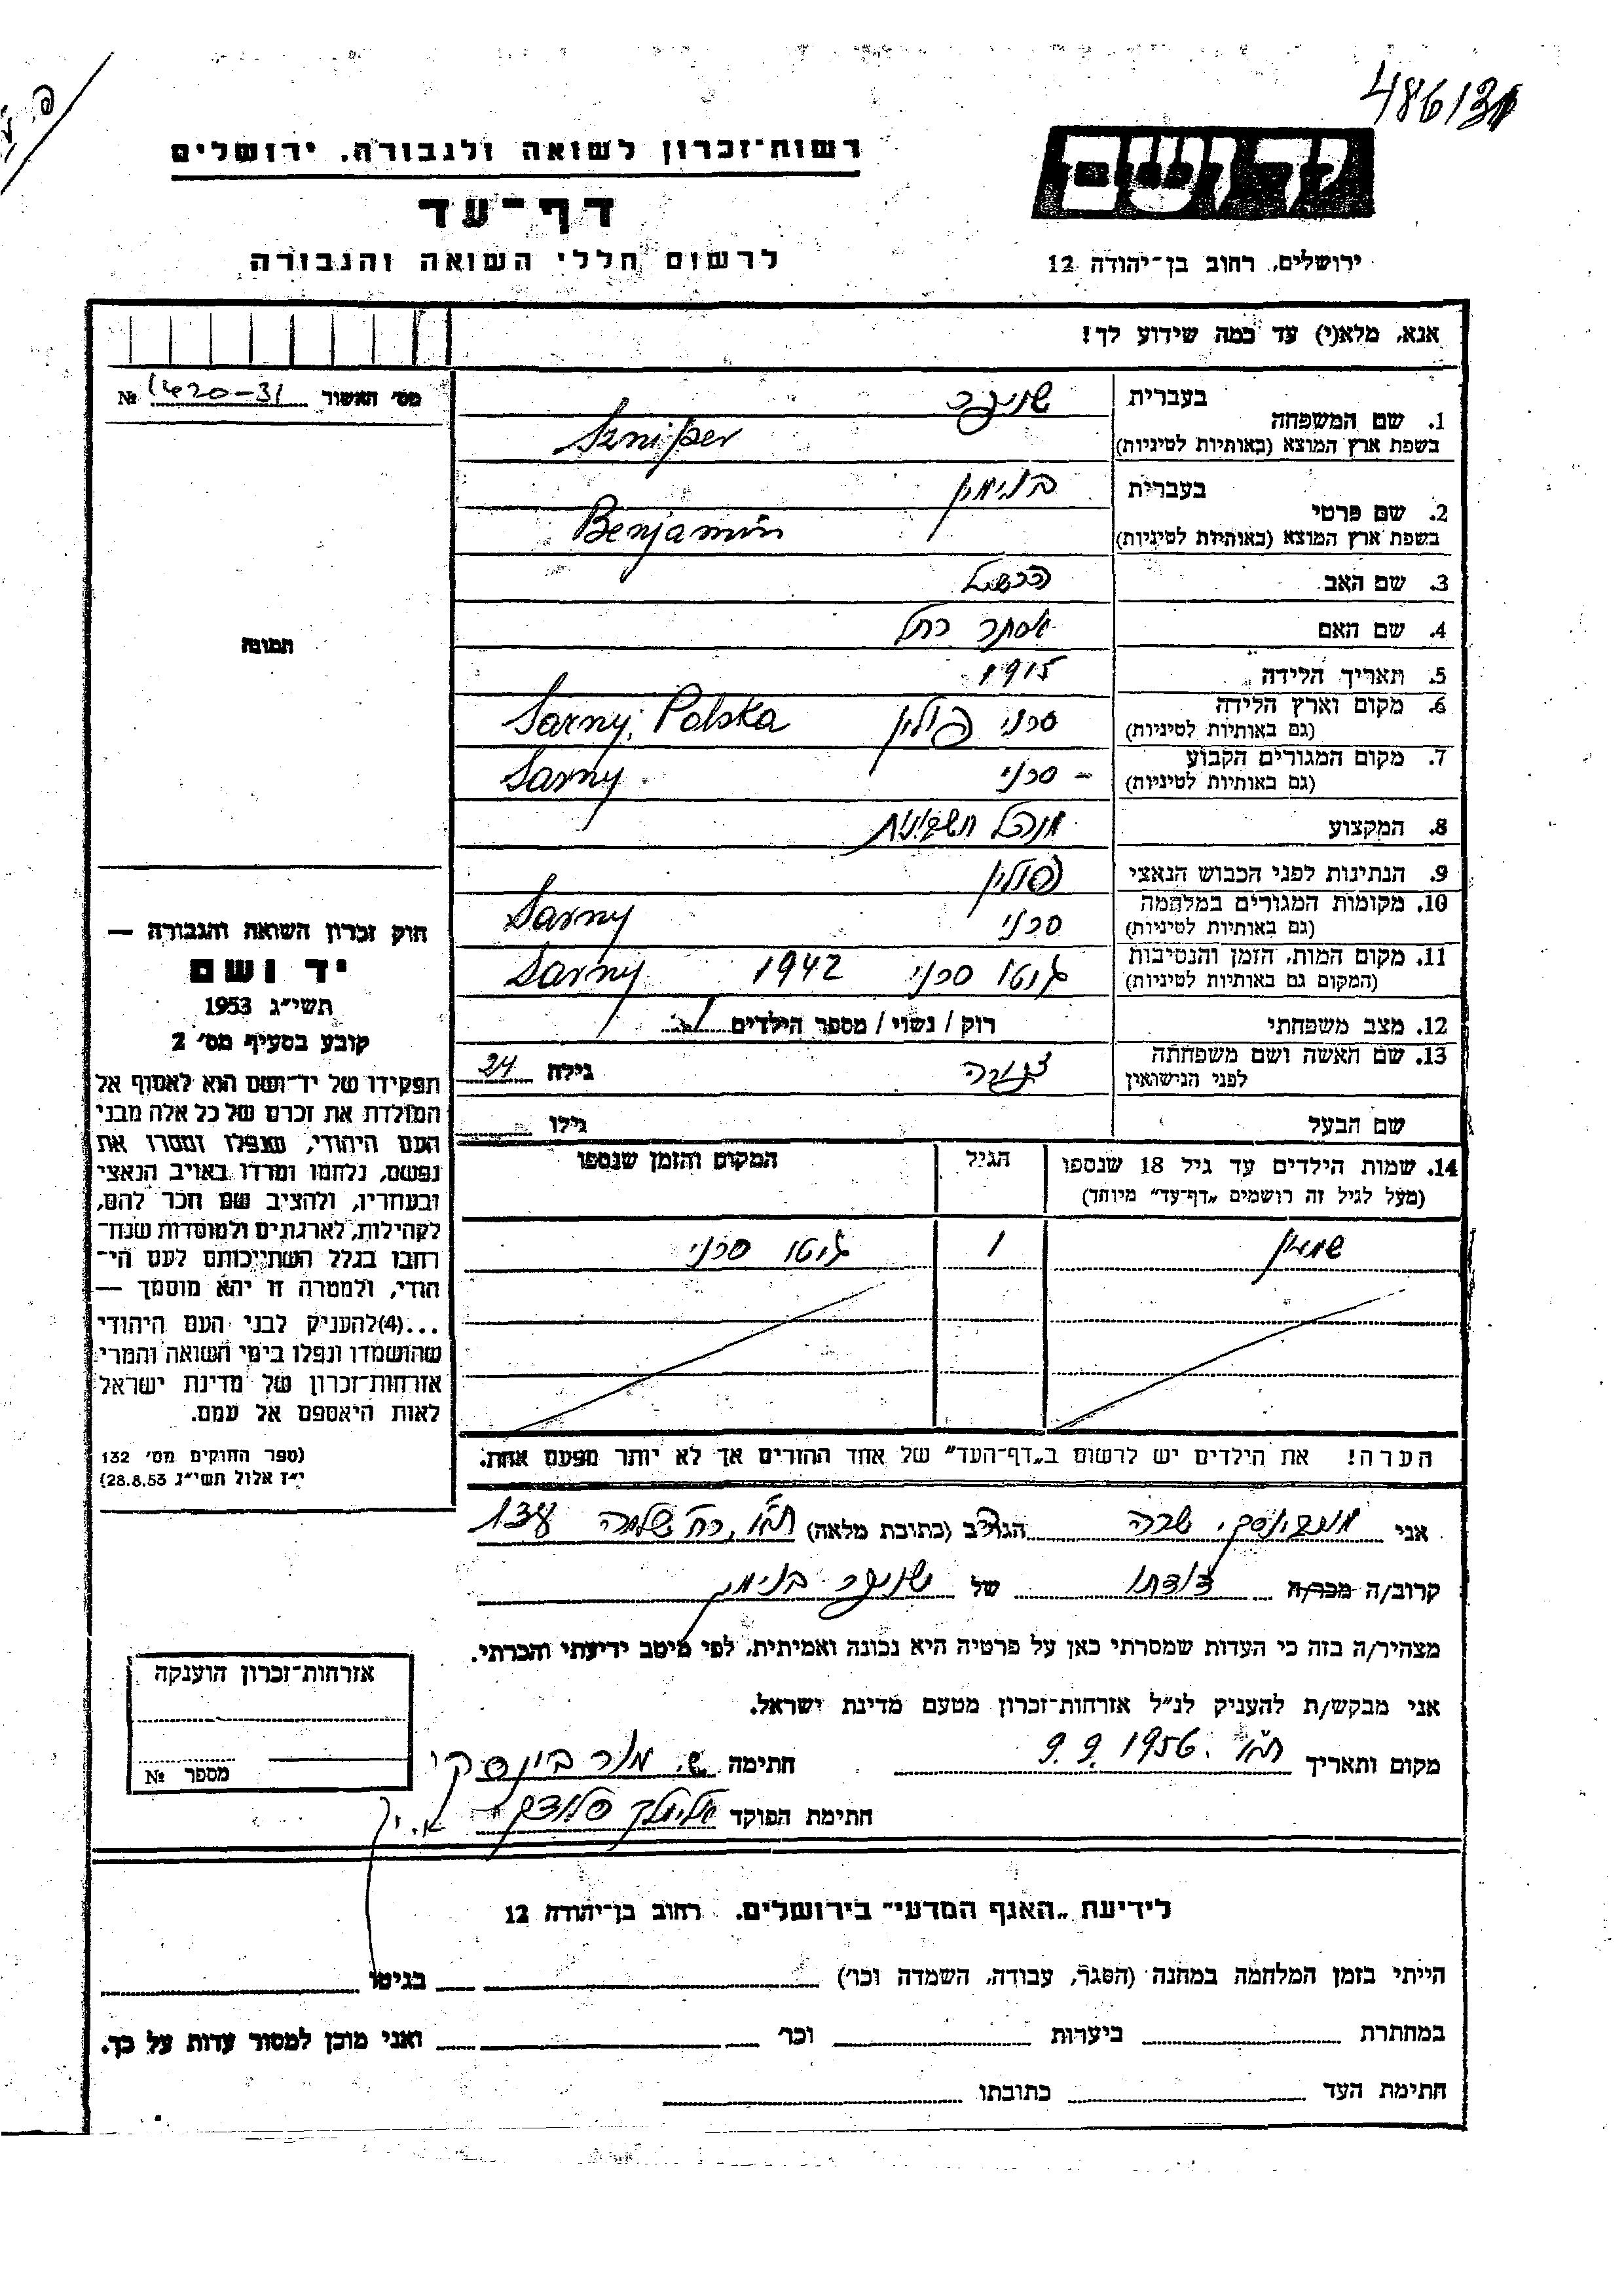 486131
רשות־זכרון לשואה ולגבורה, ירושלים
יד ושם
דף־עד
לרשום חללי השואה והגבורה
ירושלים, רחוב בן־יהודה 12
אנא, מלא(י) עד כמה שידוע לך!
מס׳ האשור 1420-31 №
1. שם המשפחה
בעברית שניפר
בשפת ארץ המוצא (באותיות לטיניות) Szniper
2. שם פרטי
בעברית בנימין
בשפת ארץ המוצא (באותיות לטיניות) Benjamin
3. שם האב הרשל
4. שם האם אסתר רחל
5. תאריך הלידה 1915
6. מקום וארץ הלידה סרני פולין Sarny, Polska
(גם באותיות לטיניות)
7. מקום המגורים הקבוע – סרני Sarny
(גם באותיות לטיניות)
8. המקצוע מנהל חשבונות
9. הנתינות לפני הכבוש הנאצי פולין
10. מקומות המגורים במלחמה סרני Sarny
(גם באותיות לטיניות)
11. מקום המות, הזמן והנסיבות גיטו סרני 1942 Sarny
(המקום גם באותיות לטיניות)
12. מצב משפחתי רוק / נשוי / מספר הילדים 1
13. שם האשה ושם משפחתה צפורה גילה 24
לפני הנישואין
שם הבעל גילו
14. שמות הילדים עד גיל 18 שנספו הגיל המקום והזמן שנספו
(מעל לגיל זה רושמים „דף־עד״ מיוחד)
1 גיטו סרני
הערה! את הילדים יש לרשום ב„דף־העד״ של אחד ההורים אך לא יותר מפעם אחת.
תמונה
חוק זכרון השואה והגבורה —
יד ושם
תשי״ג 1953
קובע בסעיף מס׳ 2
תפקידו של יד־ושם הוא לאסוף אל
המולדת את זכרם של כל אלה מבני
העם היהודי, שנפלו ומסרו את
נפשם, נלחמו ומרדו באויב הנאצי
ובעוזריו, ולהציב שם וזכר להם,
לקהילות, לארגונים ולמוסדות שנח־
רבו בגלל השתייכותם לעם הי־
הודי, ולמטרה זו יהא מוסמך —
...(4) להעניק לבני העם היהודי
שהושמדו ונפלו בימי השואה והמרי
אזרחות־זכרון של מדינת ישראל
לאות היאספם אל עמם.
(ספר החוקים מס׳ 132
י״ז אלול תשי״ג 28.8.53)
אני שרה הגר/ב (כתובת מלאה) ת״א,
קרוב/ה מכר/ה דודתו של שניפר בנימין
מצהיר/ה בזה כי העדות שמסרתי כאן על פרטיה היא נכונה ואמיתית, לפי מיטב ידיעתי והכרתי.
אני מבקש/ת להעניק לנ״ל אזרחות־זכרון מטעם מדינת ישראל.
מקום ותאריך ת״א 9.9.1956 חתימה ש.
חתימת הפוקד
אזרחות־זכרון הוענקה
מספר №
לידיעת „האגף המדעי״ בירושלים, רחוב בן־יהודה 12
הייתי בזמן המלחמה במחנה (הסגר, עבודה, השמדה וכר׳) בגיטו
במחתרת ביערות וכר׳ ואני מוכן למסור עדות על כך.
חתימת העד כתובתו